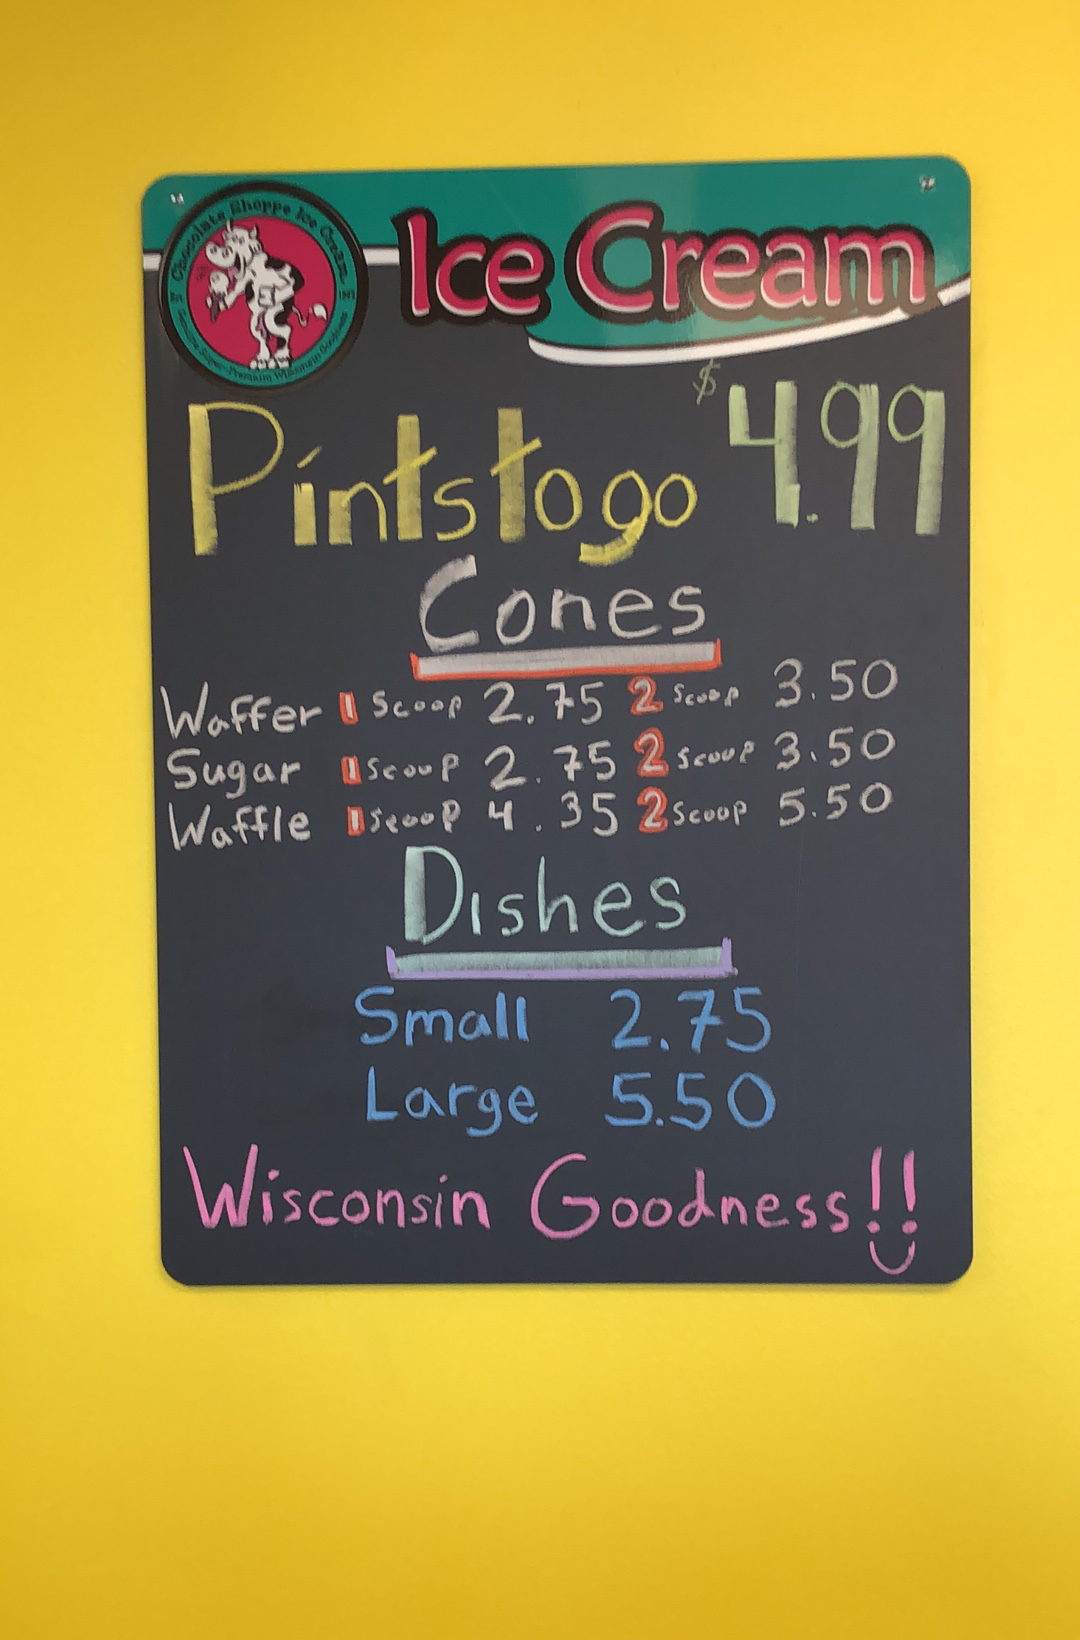 Chocolate Shoppe Ice Cream
Ice Cream
Pints to go $4.99
Cones
Waffer 1 Scoop 2.75 2 Scoop 3.50
Sugar 1 Scoop 2.75 2 Scoop 3.50
Waffle 1 Scoop 4.35 2 Scoop 5.50
Dishes
Small 2.75
Large 5.50
Wisconsin Goodness!!